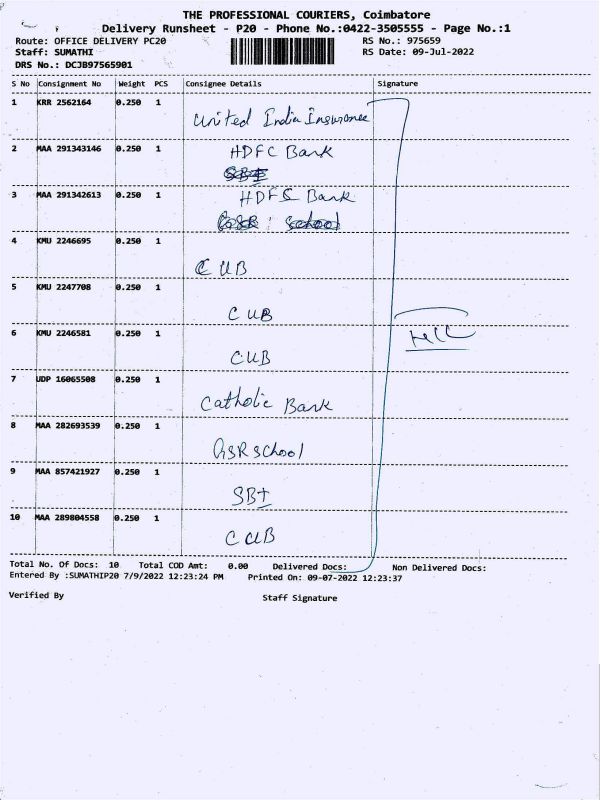 THE PROFESSIONAL COURIERS, Coimbatore
Delivery Runsheet - P20 - Phone No.:0422-3505555 - Page No.:1
Route: OFFICE DELIVERY PC20 RS No.: 975659
Staff: SUMATHI RS Date: 09-Jul-2022
DRS No.: DCJB97565901
S No Consignment No Weight PCS Consignee Details Signature
1 KRR 2562164 0.250 1
United India Insurance
2 MAA 291343146 0.250 1 HDFC Bank
3 MAA 291342613 0.250 1 HDFC Bank
4 KMU 2246695 0.250 1
CUB
5 KMU 2247708 0.250 1
CUB
6 KMU 2246581 0.250 1
CUB
7 UDP 16065508 0.250 1
Catholic Bank
8 MAA 282693539 0.250 1
School
9 MAA 857421927 0.250 1
10 MAA 289804558 0.250 1
CUB
Total No. Of Docs: 10 Total COD Amt: 0.00 Delivered Docs: Non Delivered Docs:
Entered By :SUMATHIP20 7/9/2022 12:23:24 PM Printed On: 09-07-2022 12:23:37
Verified By Staff Signature